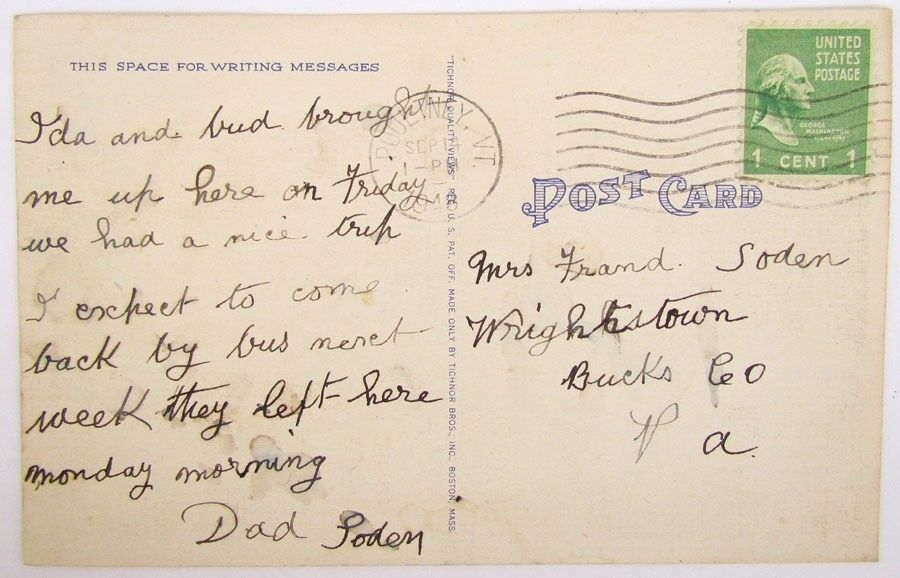 THIS SPACE FOR WRITING MESSAGES
Ida and bud brought
me up here on Friday
we had a nice trip
I expect to come
back by bus next
week they left here
monday morning
Dad Soden
"TICHNOR QUALITY VIEWS" REG. U. S. PAT. OFF. MADE ONLY BY TICHNOR BROS., INC., BOSTON, MASS.
POULTNEY, VT
SEP
UNITED
STATES
POSTAGE
GEORGE
WASHINGTON
1 CENT 1
POST CARD
Mrs Frand. Soden
Wrightstown
Bucks Co
Pa.